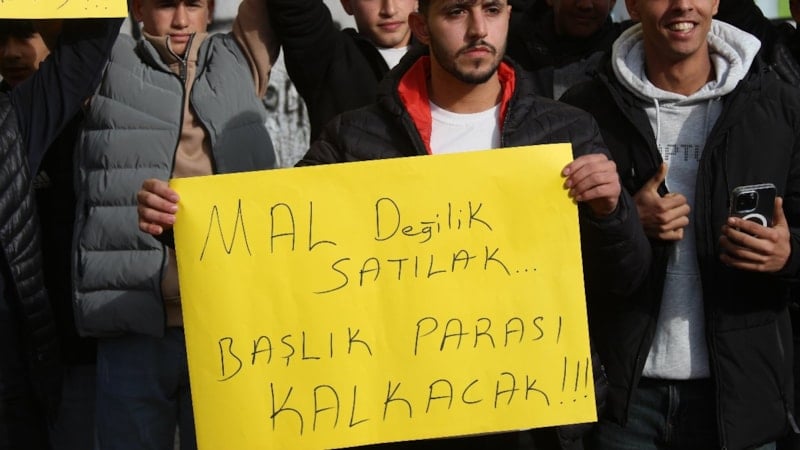 MAL Değilik
SATILAK...
BAŞLIK PARASI
KALKACAK!!!